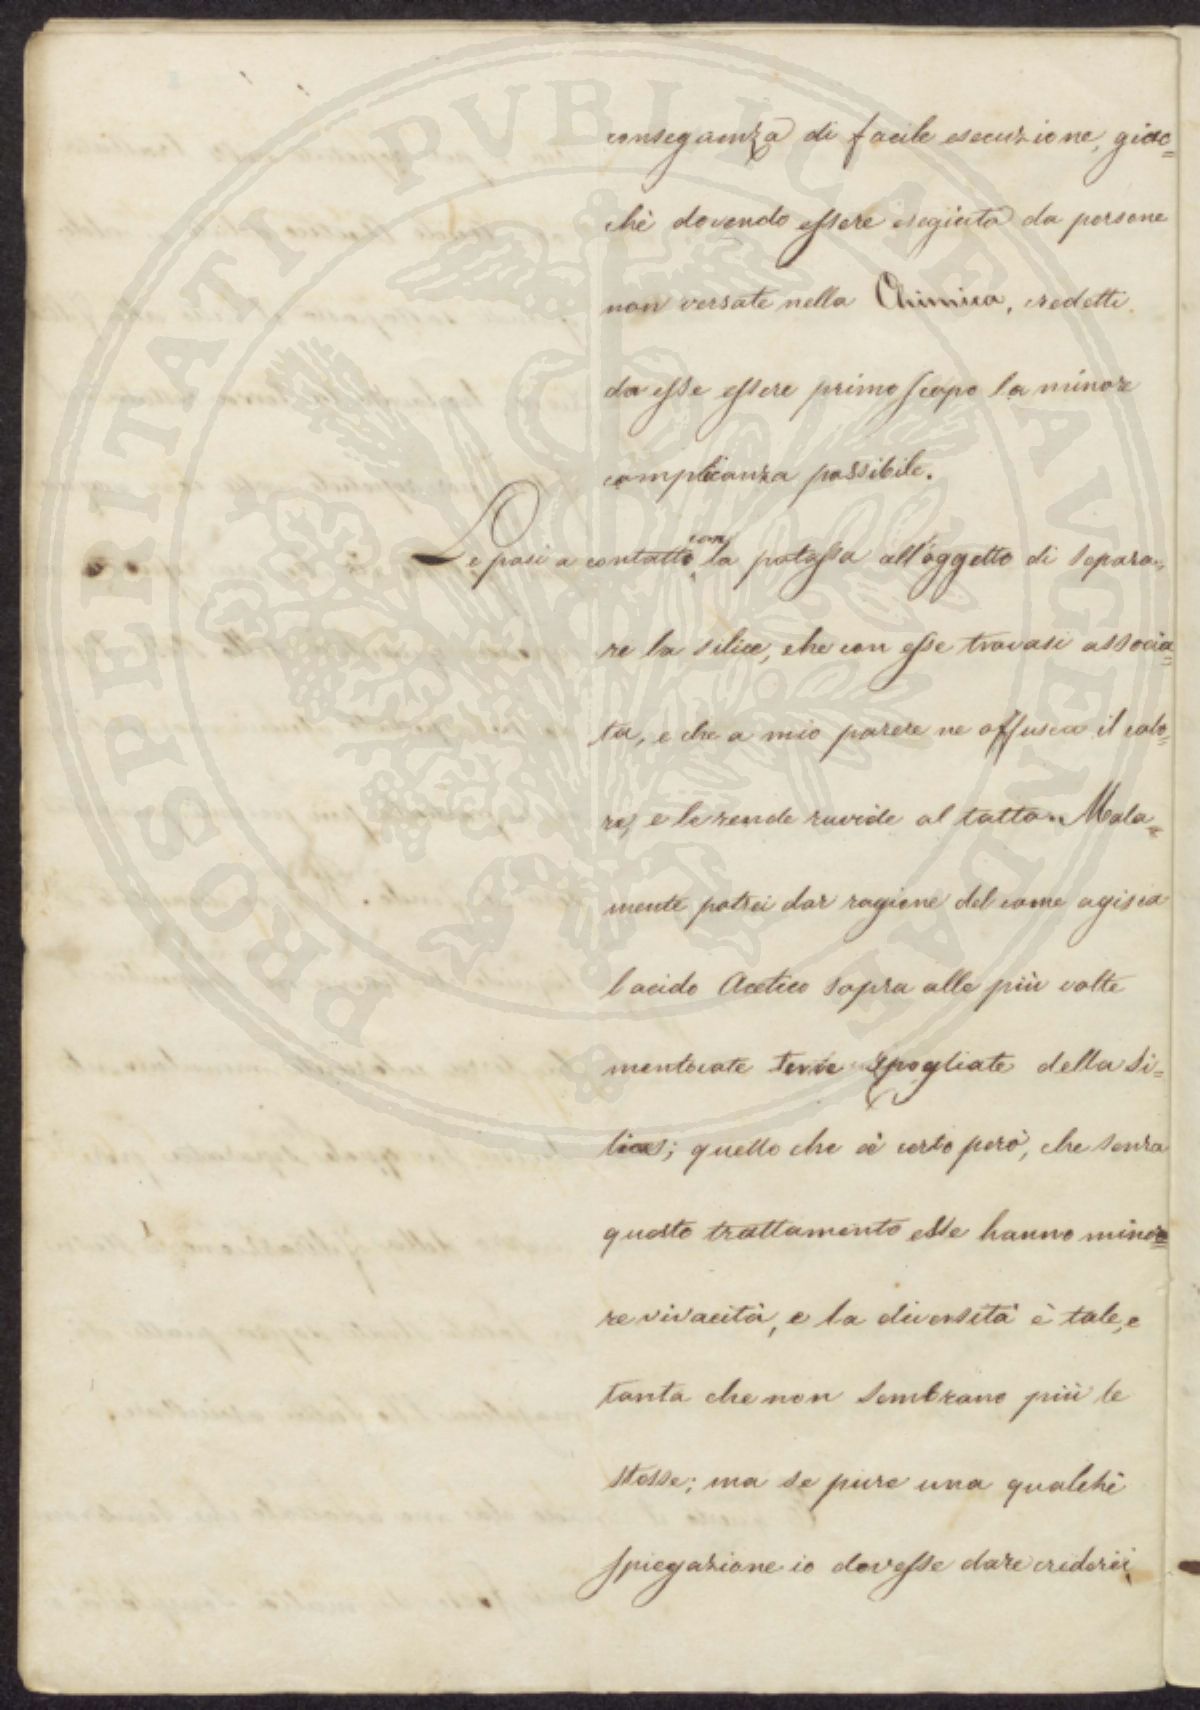 PROSPERITATI PVBLICAE AVGENDAE
conseguenza di facile esecuzione, giac=
chè dovendo essere eseguita da persone
non versate nella Chimica, credetti
da esse essere primo scopo la minore
complicanza possibile.
Le posi a contatto con la potassa all'oggetto di separa=
re la silice, che con esse trovasi associa=
ta, e che a mio parere ne offusca il colo=
re, e le rende ruvide al tatto. Mala=
mente potrei dar ragione del come agisca
l acido Acetico sopra alle più volte
mentovate terre spogliate della Si=
lice; quello che è certo però, che senza
questo trattamento esse hanno mino=
re vivacità, e la diversità è tale, e
tanta che non sembrano più le
stesse; ma se pure una qualchè
spiegazione io dovesse dare crederei